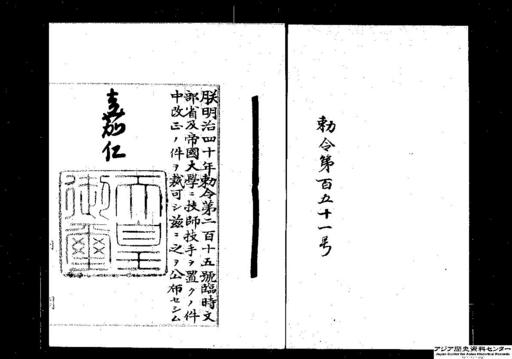 勅令第百五十一号
朕明治四十年勅令第二百十五號臨時文
部省及帝國大學ニ技師技手ヲ置クノ件
中改正ノ件ヲ裁可シ茲ニ之ヲ公布セシム
嘉仁
天皇
御璽
アジア歴史資料センター
Japan Center for Asian Historical Records